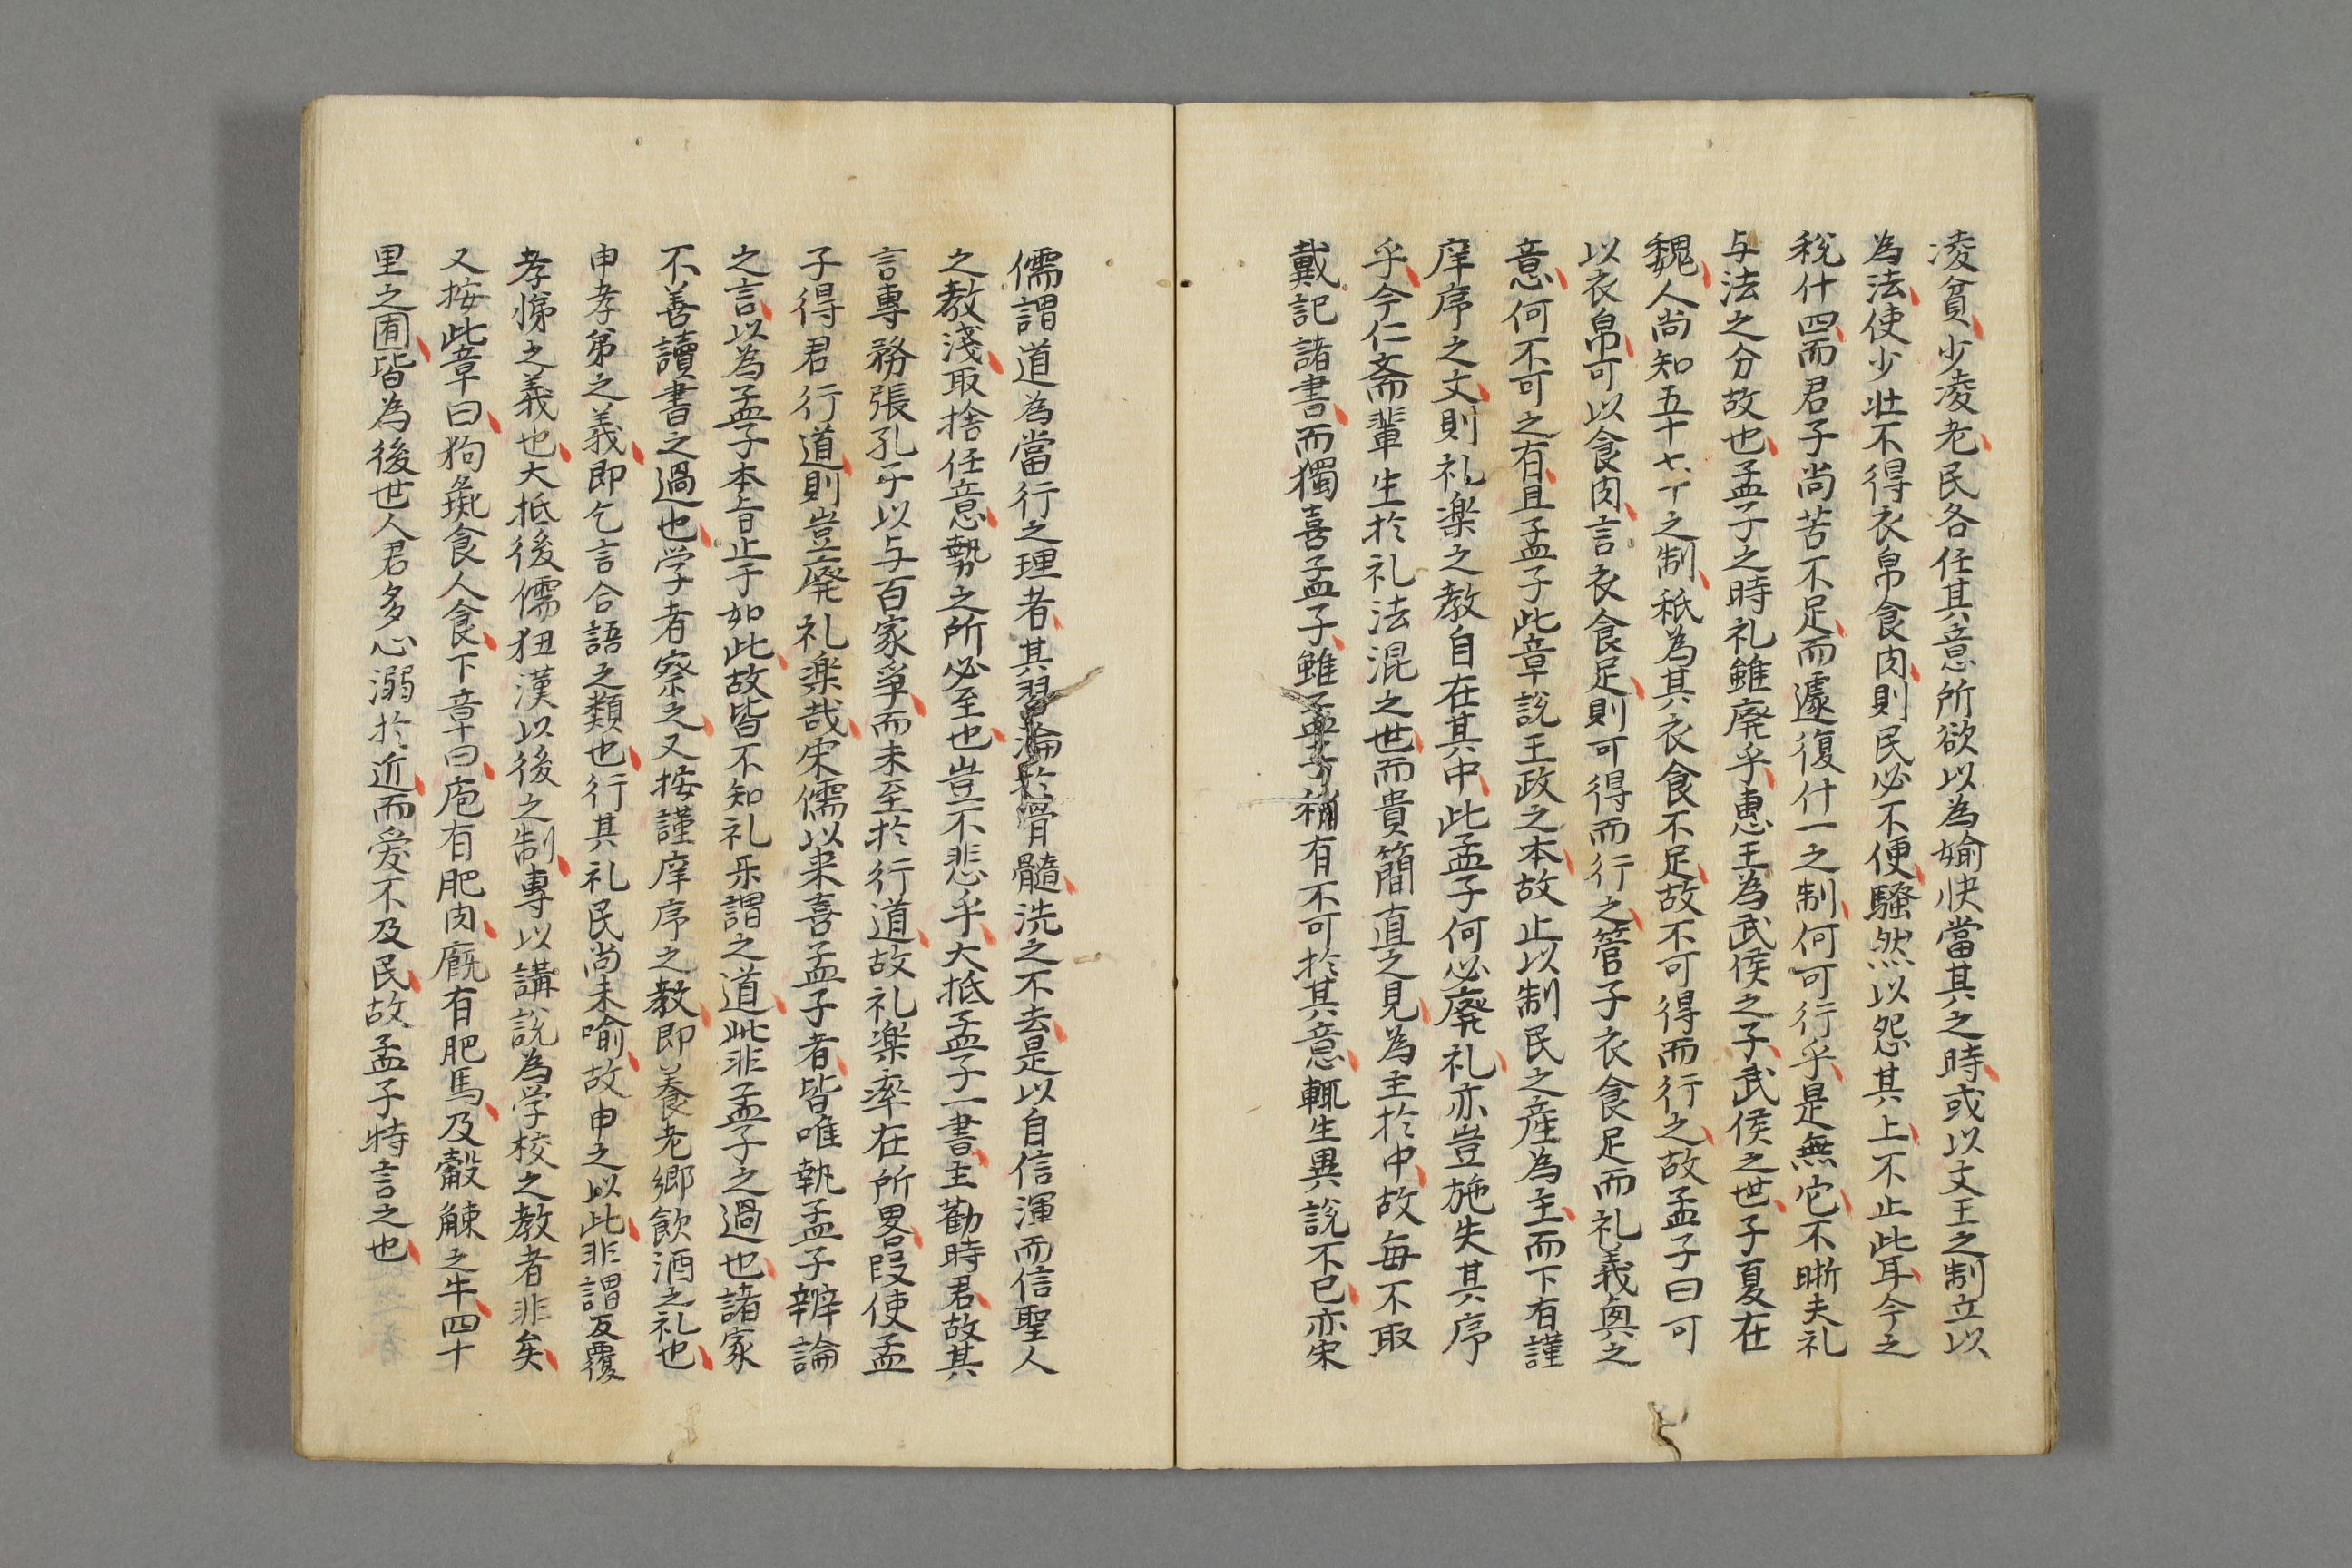 凌貧少凌老民各任其意所欲以為媮快當其之時或以文王之制立以
為法使少壮不得衣帛食肉則民必不便騷然以怨其上不止此耳今之
税什四而君子尚苦不足而遽復什一之制何可行乎是無它不晣夫礼
与法之分故也孟子之時礼雖廃乎惠王為武侯之子武侯之世子夏在
魏人尚知五十七十之制秖為其衣食不足故不可得而行之故孟子曰可
以衣帛可以食肉言衣食足則可得而行之管子衣食足而礼義與之
意何不可之有且孟子此章説王政之本故止以制民之産為主而下有謹
庠序之文則礼楽之教自在其中此孟子何必廃礼亦豈施失其序
乎今仁斎輩生於礼法混之世而貴簡直之見為主於中故每不取
戴記諸書而獨喜孟子雖孟子稍有不可於其意輒生異説不已亦宋
儒謂道為當行之理者其習淪於骨髓洗之不去是以自信渾而信聖人
之教淺取捨任意勢之所必至也豈不悲乎大抵孟子一書主勸時君故其
言專務張孔子以与百家爭而未至於行道故礼楽率在所畧叚使孟
子得君行道則豈廃礼楽哉宋儒以来喜孟子者皆唯執孟子辨論
之言以為孟子本旨止于如此故皆不知礼乐謂之道此非孟子之過也諸家
不善讀書之過也学者察之又按謹庠序之教即養老郷飲酒之礼也
申孝弟之義即乞言合語之類也行其礼民尚未喻故申之以此非謂反覆
孝悌之義也大抵後儒狃漢以後之制專以講説為学校之教者非矣
又按此章曰狗彘食人食下章曰庖有肥肉廐有肥馬及觳觫之牛四十
里之囿皆為後世人君多心溺於近而爱不及民故孟子特言之也